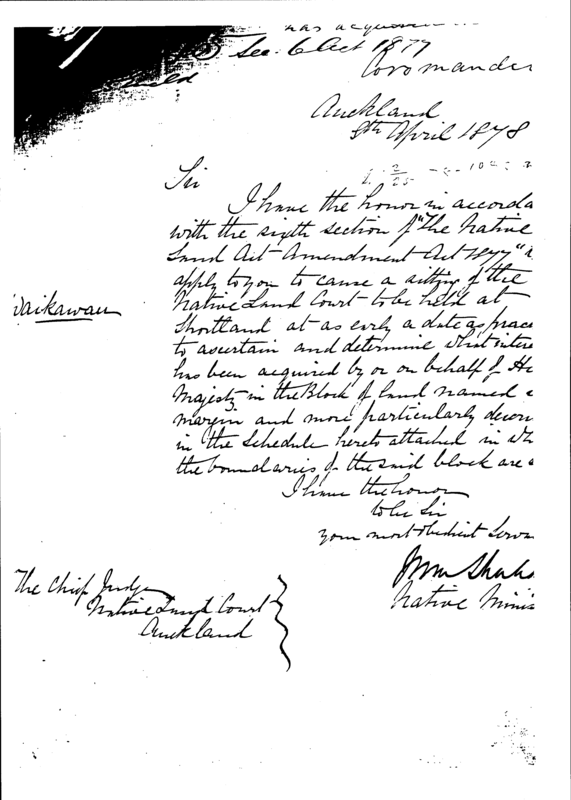 has acquired
Sec. 6 Act 1877
Coromandel
Auckland
8th April 1878
Sir
I have the honor in accorda
with the sixth section of "The Native
Land Act Amendment Act 1877"
apply to you to cause a sitting of the
Native Land Court to be held at
Shortland at as early a date as prac
to ascertain and determine what inter
has been acquired by or on behalf of He
Majesty in the Block of land named
margin and more particularly
in the schedule hereto attached in wh
the boundaries of the said block are
Waikawau
I have the honor
to be Sir
your most obedient Serva
Native Minis
The Chief Judge
Native Land Court
Auckland